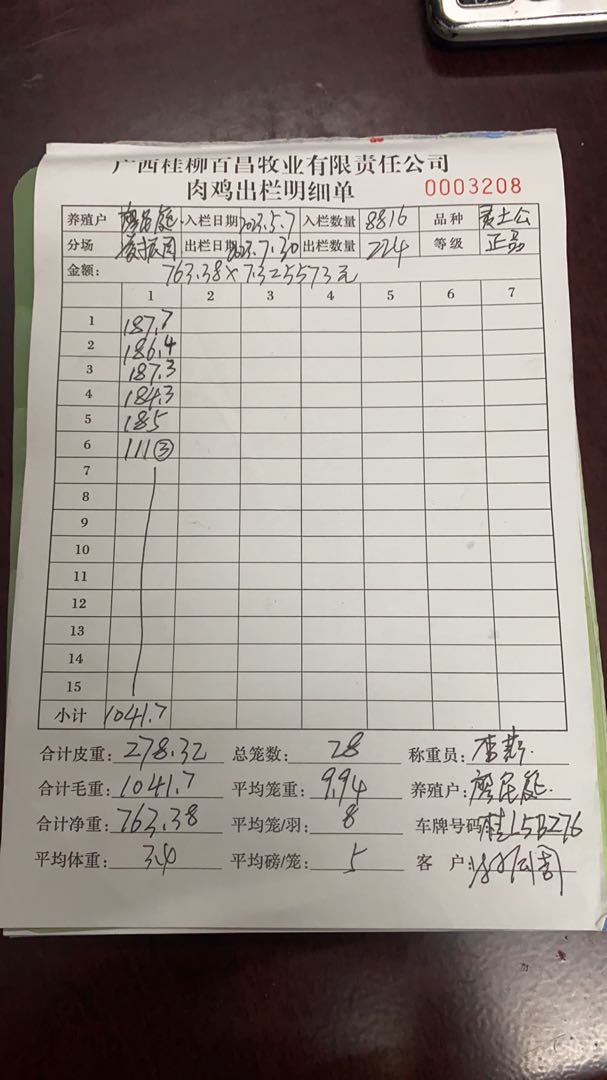 广西桂柳百昌牧业有限责任公司
肉鸡出栏明细单 0003208
养殖户 入栏日期 2023.5.7 入栏数量 8816 品种 麦士公
分场 出栏日期 2023.7.30 出栏数量 224 等级 正品
金额: 763.38×7.3=5573元
1 2 3 4 5 6 7
1 187.7
2 186.4
3 187.3
4 184.3
5 185
6 111③
7
8
9
10
11
12
13
14
15
小计 1041.7
合计皮重: 278.32 总笼数: 28 称重员:
合计毛重: 1041.7 平均笼重: 9.94 养殖户:
合计净重: 763.38 平均笼/羽: 8 车牌号码 桂L5B276
平均体重: 3.4 平均磅/笼: 5 客 户: